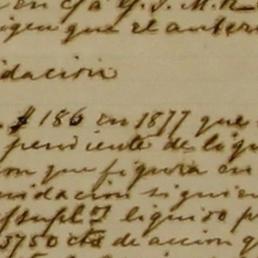 en c/a
igen que el anteri
idacion
$ 186 en 1877 que
pendiente de liqu
on que figura en
uidacion siguien
supl.t liquido p
3750 cts de accion q